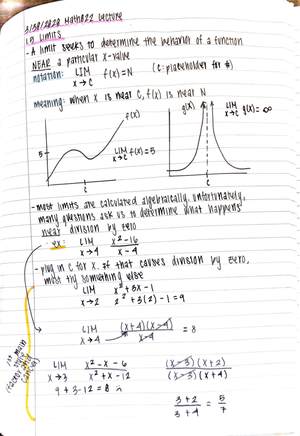 Math22 lecture
1.5 limits
- A limit seeks to determine the behavior of a function
NEAR a particular x-value
notation: LIM f(x)=N (c: placeholder for #)
x→c
meaning: when x is near c, f(x) is near N
f(x)
5
LIM f(x)=5
x→c
c
g(x)
LIM g(x)=∞
x→c
c
- most limits are calculated algebraically. unfortunately,
many questions ask us to determine what happens
near division by zero
- ex: LIM x²-16
x→4 x-4
- plug in c for x. if that causes division by zero,
must try something else
LIM x²+3x-1
x→2 2²+3(2)-1=9
LIM (x+4)(x-4) = 8
x→4 x-4
1st main
(factor and
cancel)
LIM x²-x-6
x→3 x²+x-12
9+3-12=0
(x-3)(x+2)
(x-3)(x+4)
3+2 = 5
3+4 7